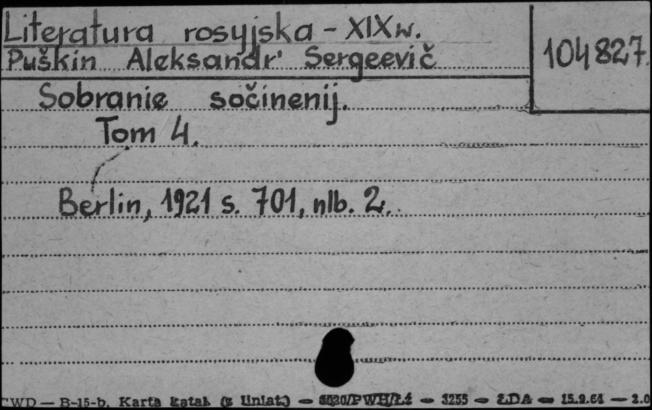 Literatura rosyjska - XIX w.
Puškin Aleksandr' Sergeevič
104827.
Sobranie sočinenij.
Tom 4.
Berlin, 1921 s. 701, nlb. 2.
CWD — B-15-b. Karta katal. (z liniat.) — /PWH/Łź — 3255 — ŁDA — 15.9.61 — 2.0